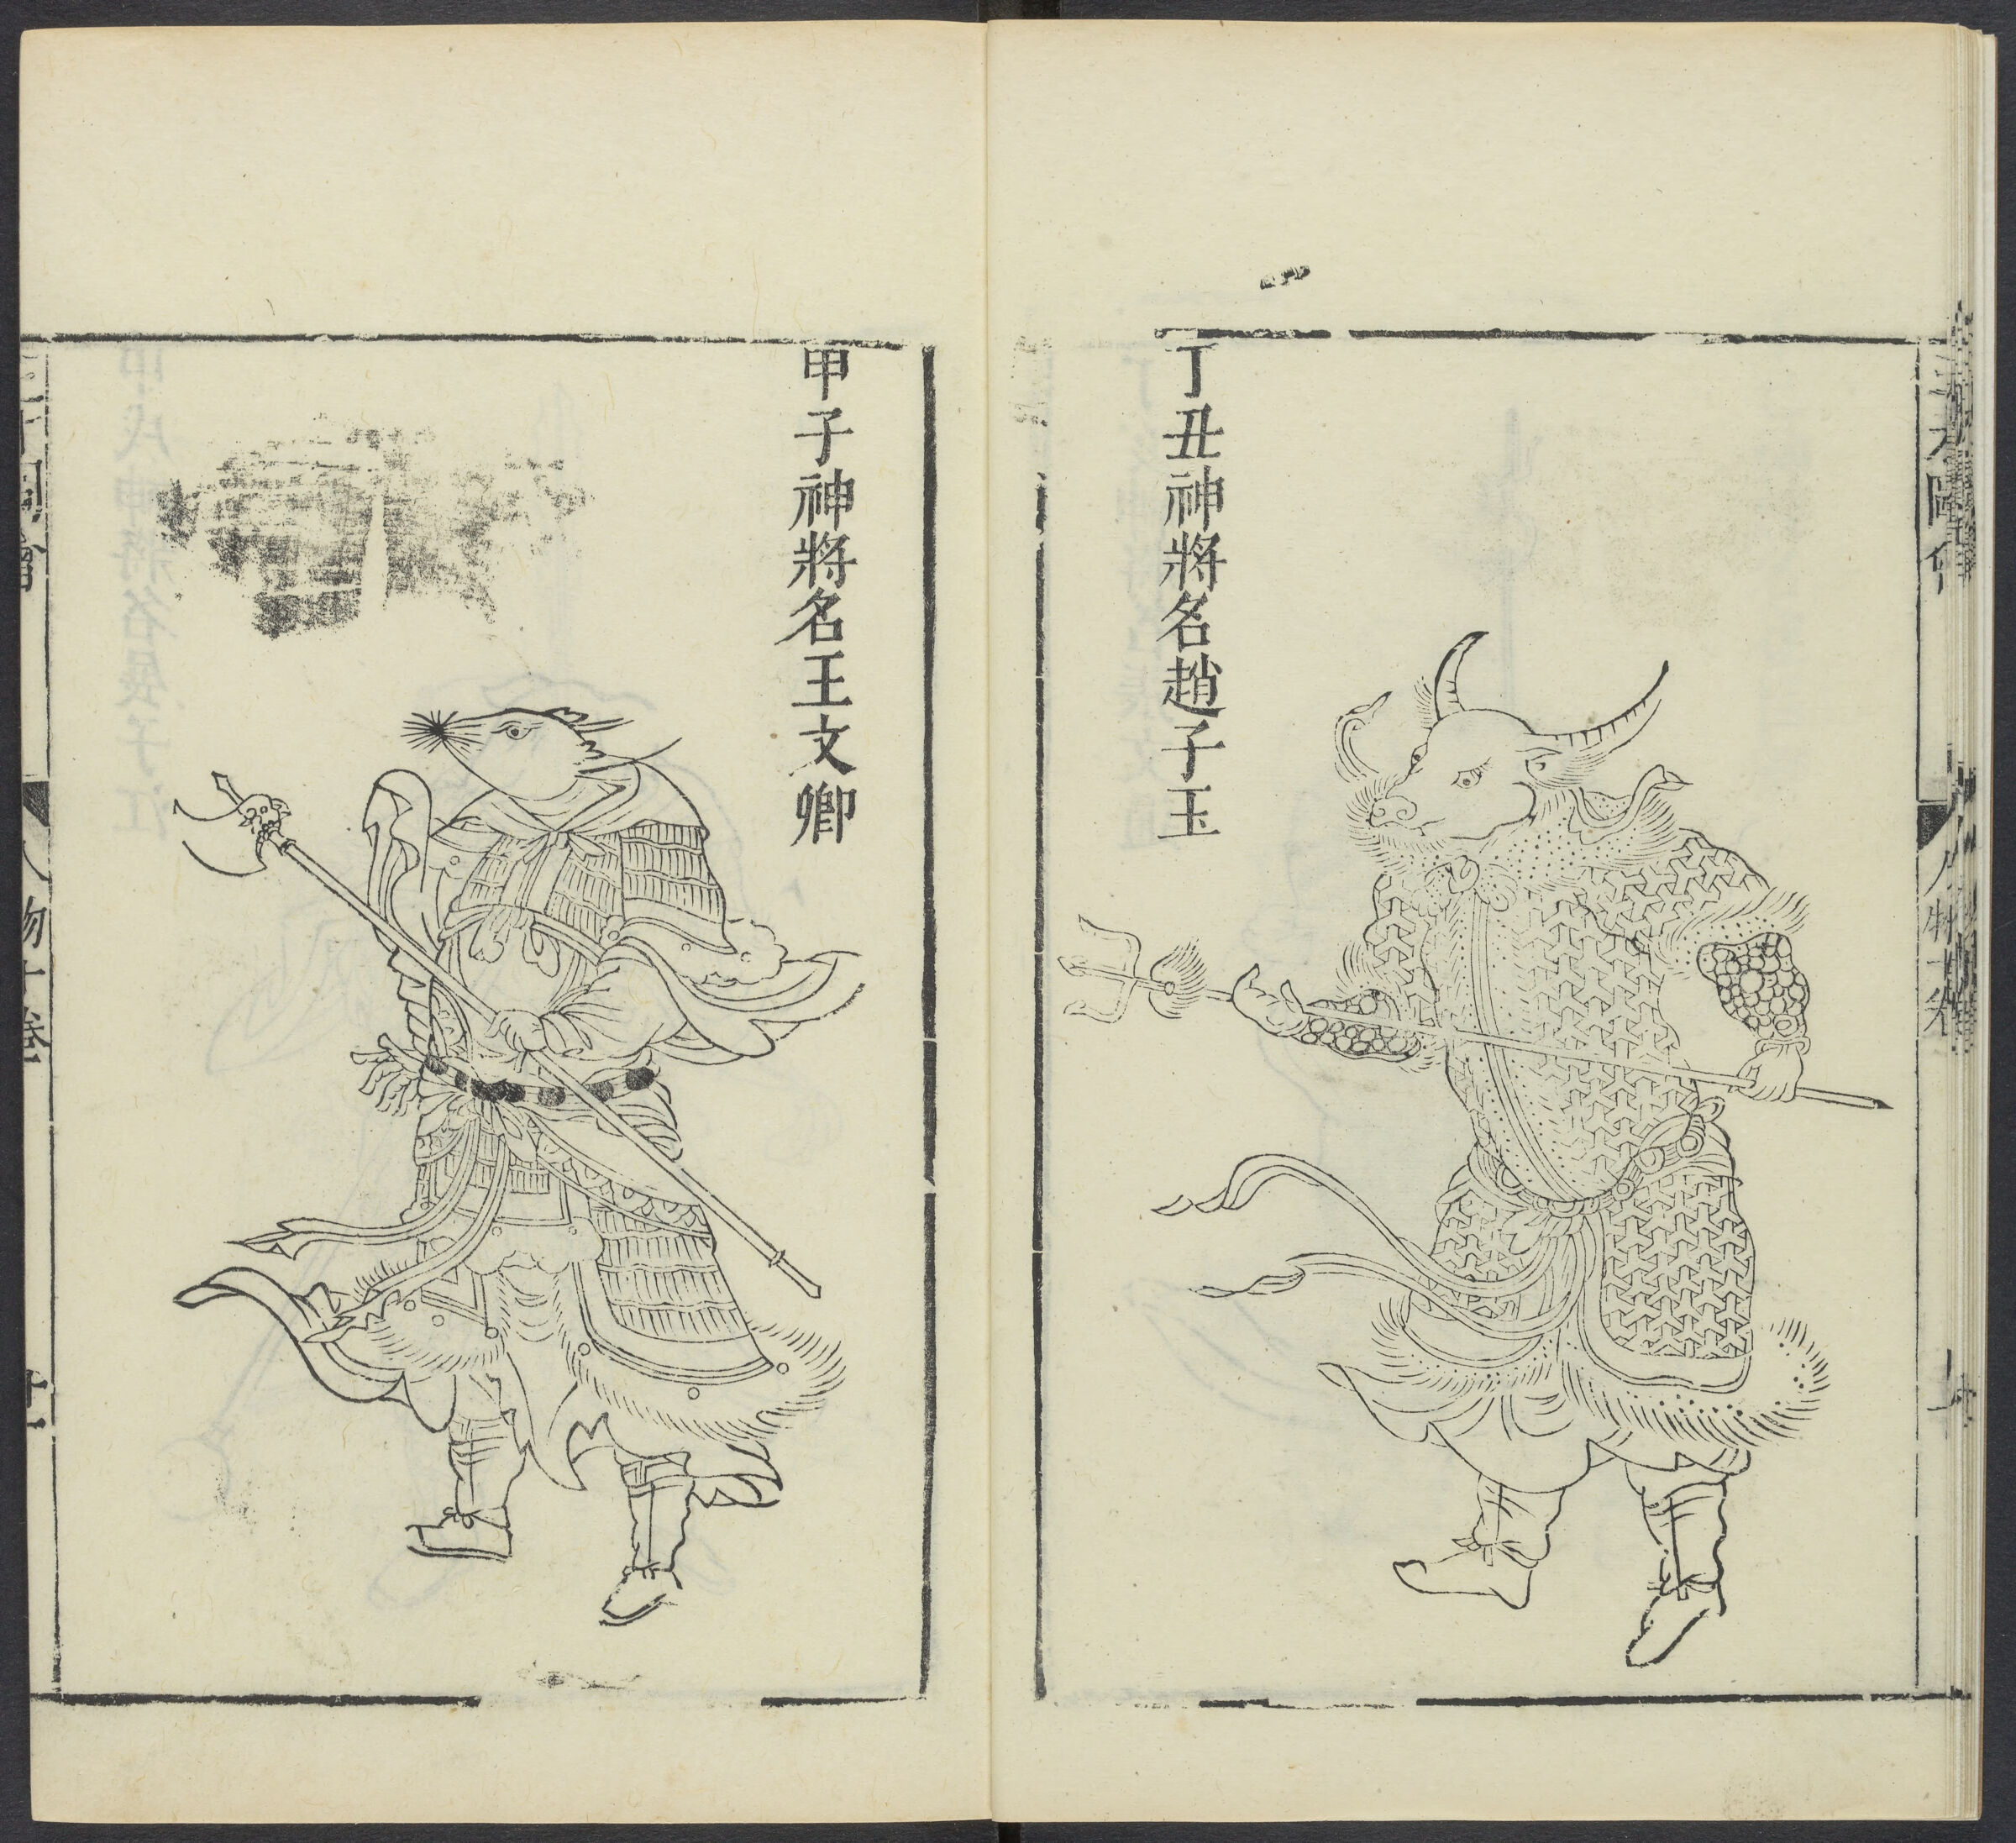 丁丑神將名趙子玉
甲子神將名王文卿